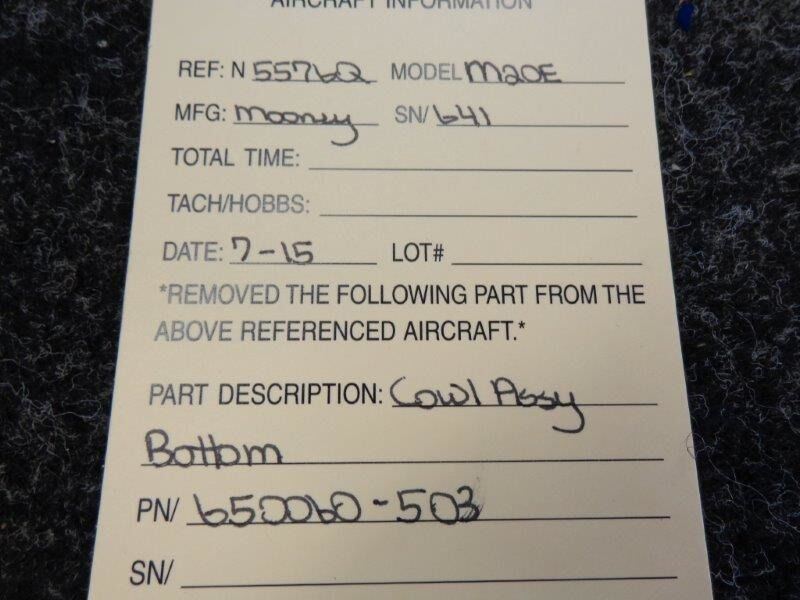 AIRCRAFT INFORMATION
REF: N 5576Q MODEL M20E
MFG: Mooney SN/ 641
TOTAL TIME:
TACH/HOBBS:
DATE: 7-15 LOT#
*REMOVED THE FOLLOWING PART FROM THE
ABOVE REFERENCED AIRCRAFT.*
PART DESCRIPTION: Cowl Assy
Bottom
PN/ 650060-503
SN/